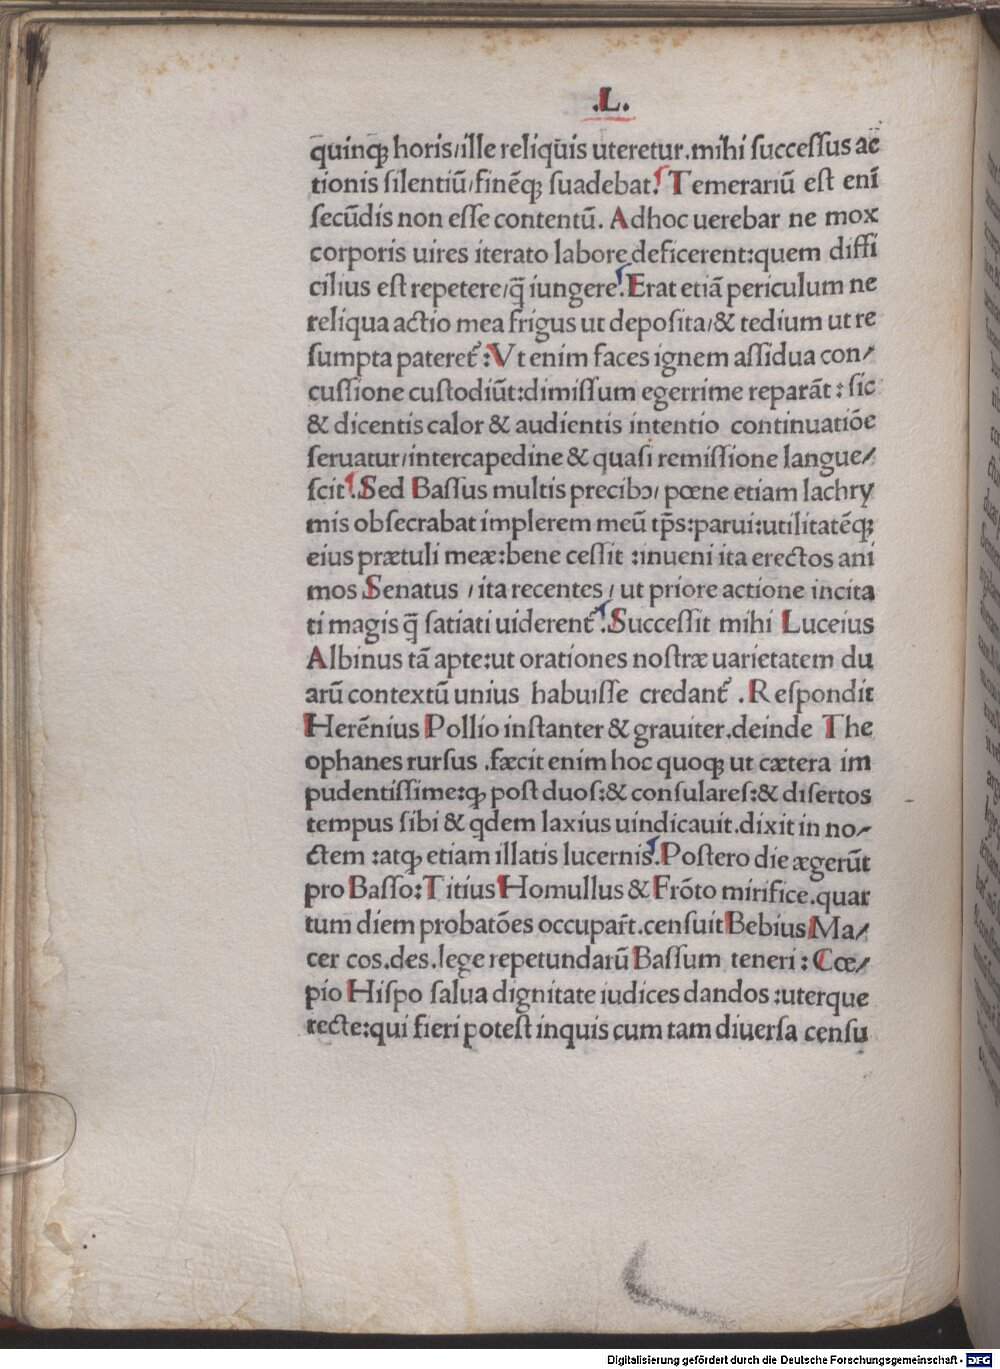 .L.
quinqꝫ horis/ille reliqūis uteretur.mihi ſucceſſus ac
tionis ſilentiū/finēqꝫ ſuadebat. Temerariū eſt enī
ſecūdis non eſſe contentū. Adhoc uerebar ne mox
corporis uires iterato labore deficerent:quem diffi
cilius eſt repetere/q̄ iungere. Erat etiā periculum ne
reliqua actio mea frigus ut depoſita/& tedium ut re
ſumpta pateret᷑:Vt enim faces ignem aſſidua con/
cuſſione cuſtodiūt:dimiſſum egerrime reparāt: ſic
& dicentis calor & audientis intentio continuatiōe
ſeruatur/intercapedine & quaſi remiſſione langue/
ſcit. Sed Baſſus multis precibɔ/ pœne etiam lachry
mis obſecrabat implerem meū tp̄s:parui:utilitatēqꝫ
eius prætuli meæ:bene ceſſit :inueni ita erectos ani
mos Senatus /ita recentes/ ut priore actione incita
ti magis q̄ ſatiati uiderent᷑. Succeſſit mihi Luceius
Albinus tā apte:ut orationes noſtræ uarietatem du
arū contextū unius habuiſſe credant᷑ . Reſpondit
Herēnius Pollio inſtanter & grauiter.deinde The
ophanes rurſus .fæcit enim hoc quoqꝫ ut cætera im
pudentiſſime:ꝙ poſt duoſ:& conſulareſ:& diſertos
tempus ſibi & qdem laxius uindicauit.dixit in no/
ctem :atqꝫ etiam illatis lucernis. Poſtero die ægerūt
pro Baſſo:Titius Homullus & Frōto mirifice.quar
tum diem probatōes occupar̄t.cenſuit Bebius Ma/
cer cos.des.lege repetundarū Baſſum teneri: Cœ/
pio Hiſpo ſalua dignitate iudices dandos :uterque
recte:qui fieri poteſt inquis cum tam diuerſa cenſu
Digitalisierung gefördert durch die Deutsche Forschungsgemeinschaft - DFG